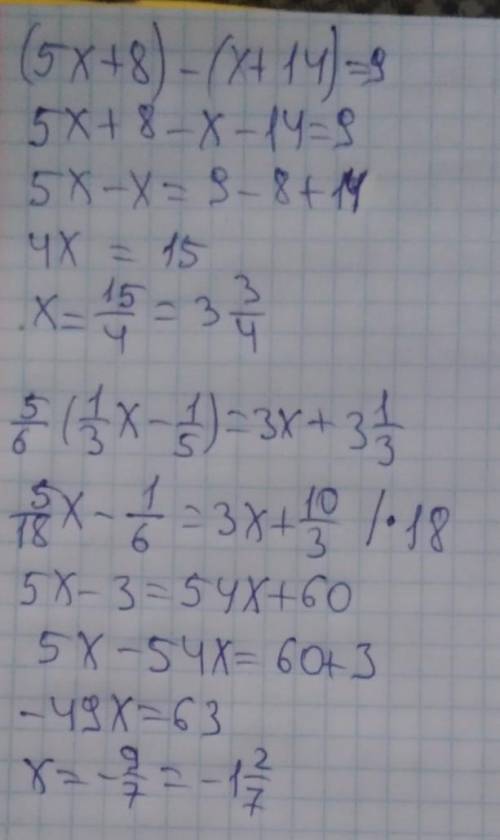 (5x+8)-(x+14)=9
5x+8-x-14=9
5x-x=9-8+14
4x=15
x=15/4=3 3/4
5/6(1/3x-1/5)=3x+3 1/3
5/18x-1/6=3x+10/3 /·18
5x-3=54x+60
5x-54x=60+3
-49x=63
x=-9/7=-1 2/7